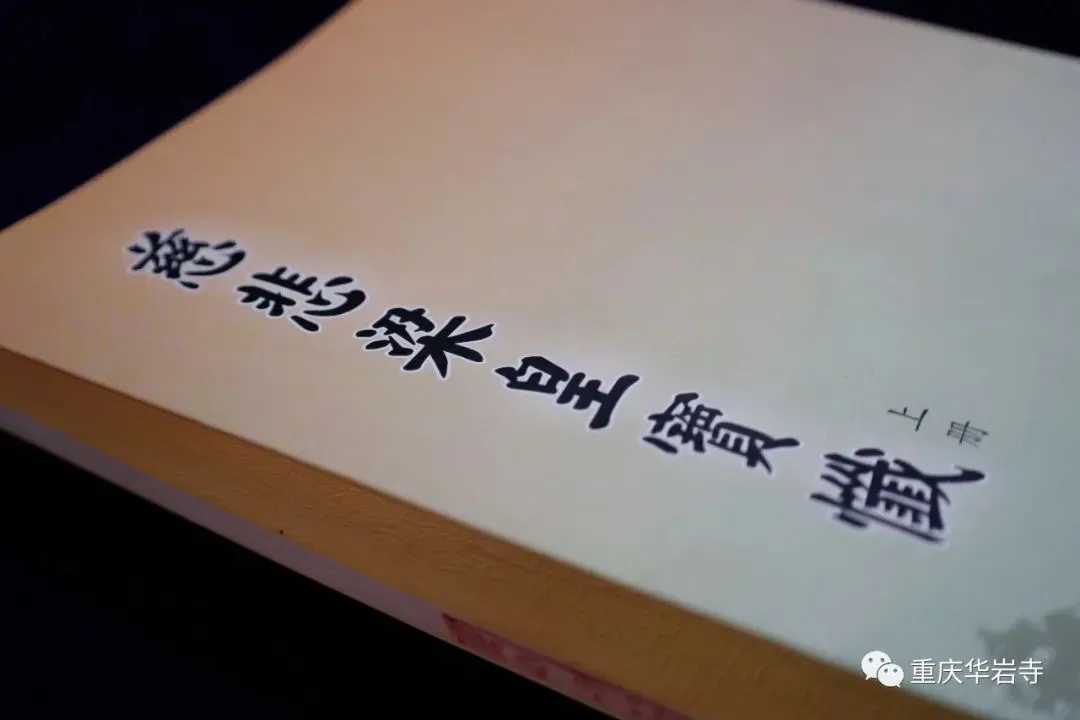 慈悲梁皇寶懺
上册
重庆华岩寺